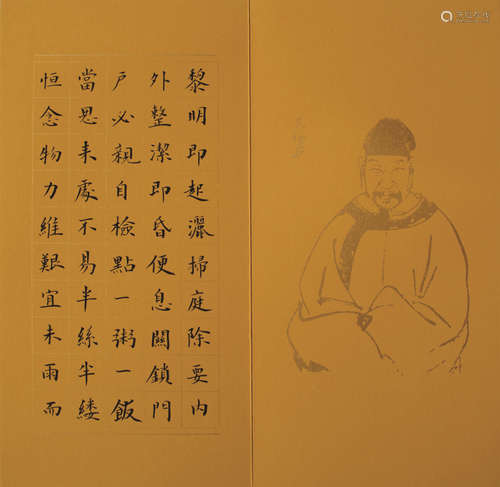 黎明即起灑掃庭除要内
外整潔即昏便息關鎖門
户必親自檢點一粥一飯
當思来處不易半絲半縷
恒念物力維艱宜未雨而